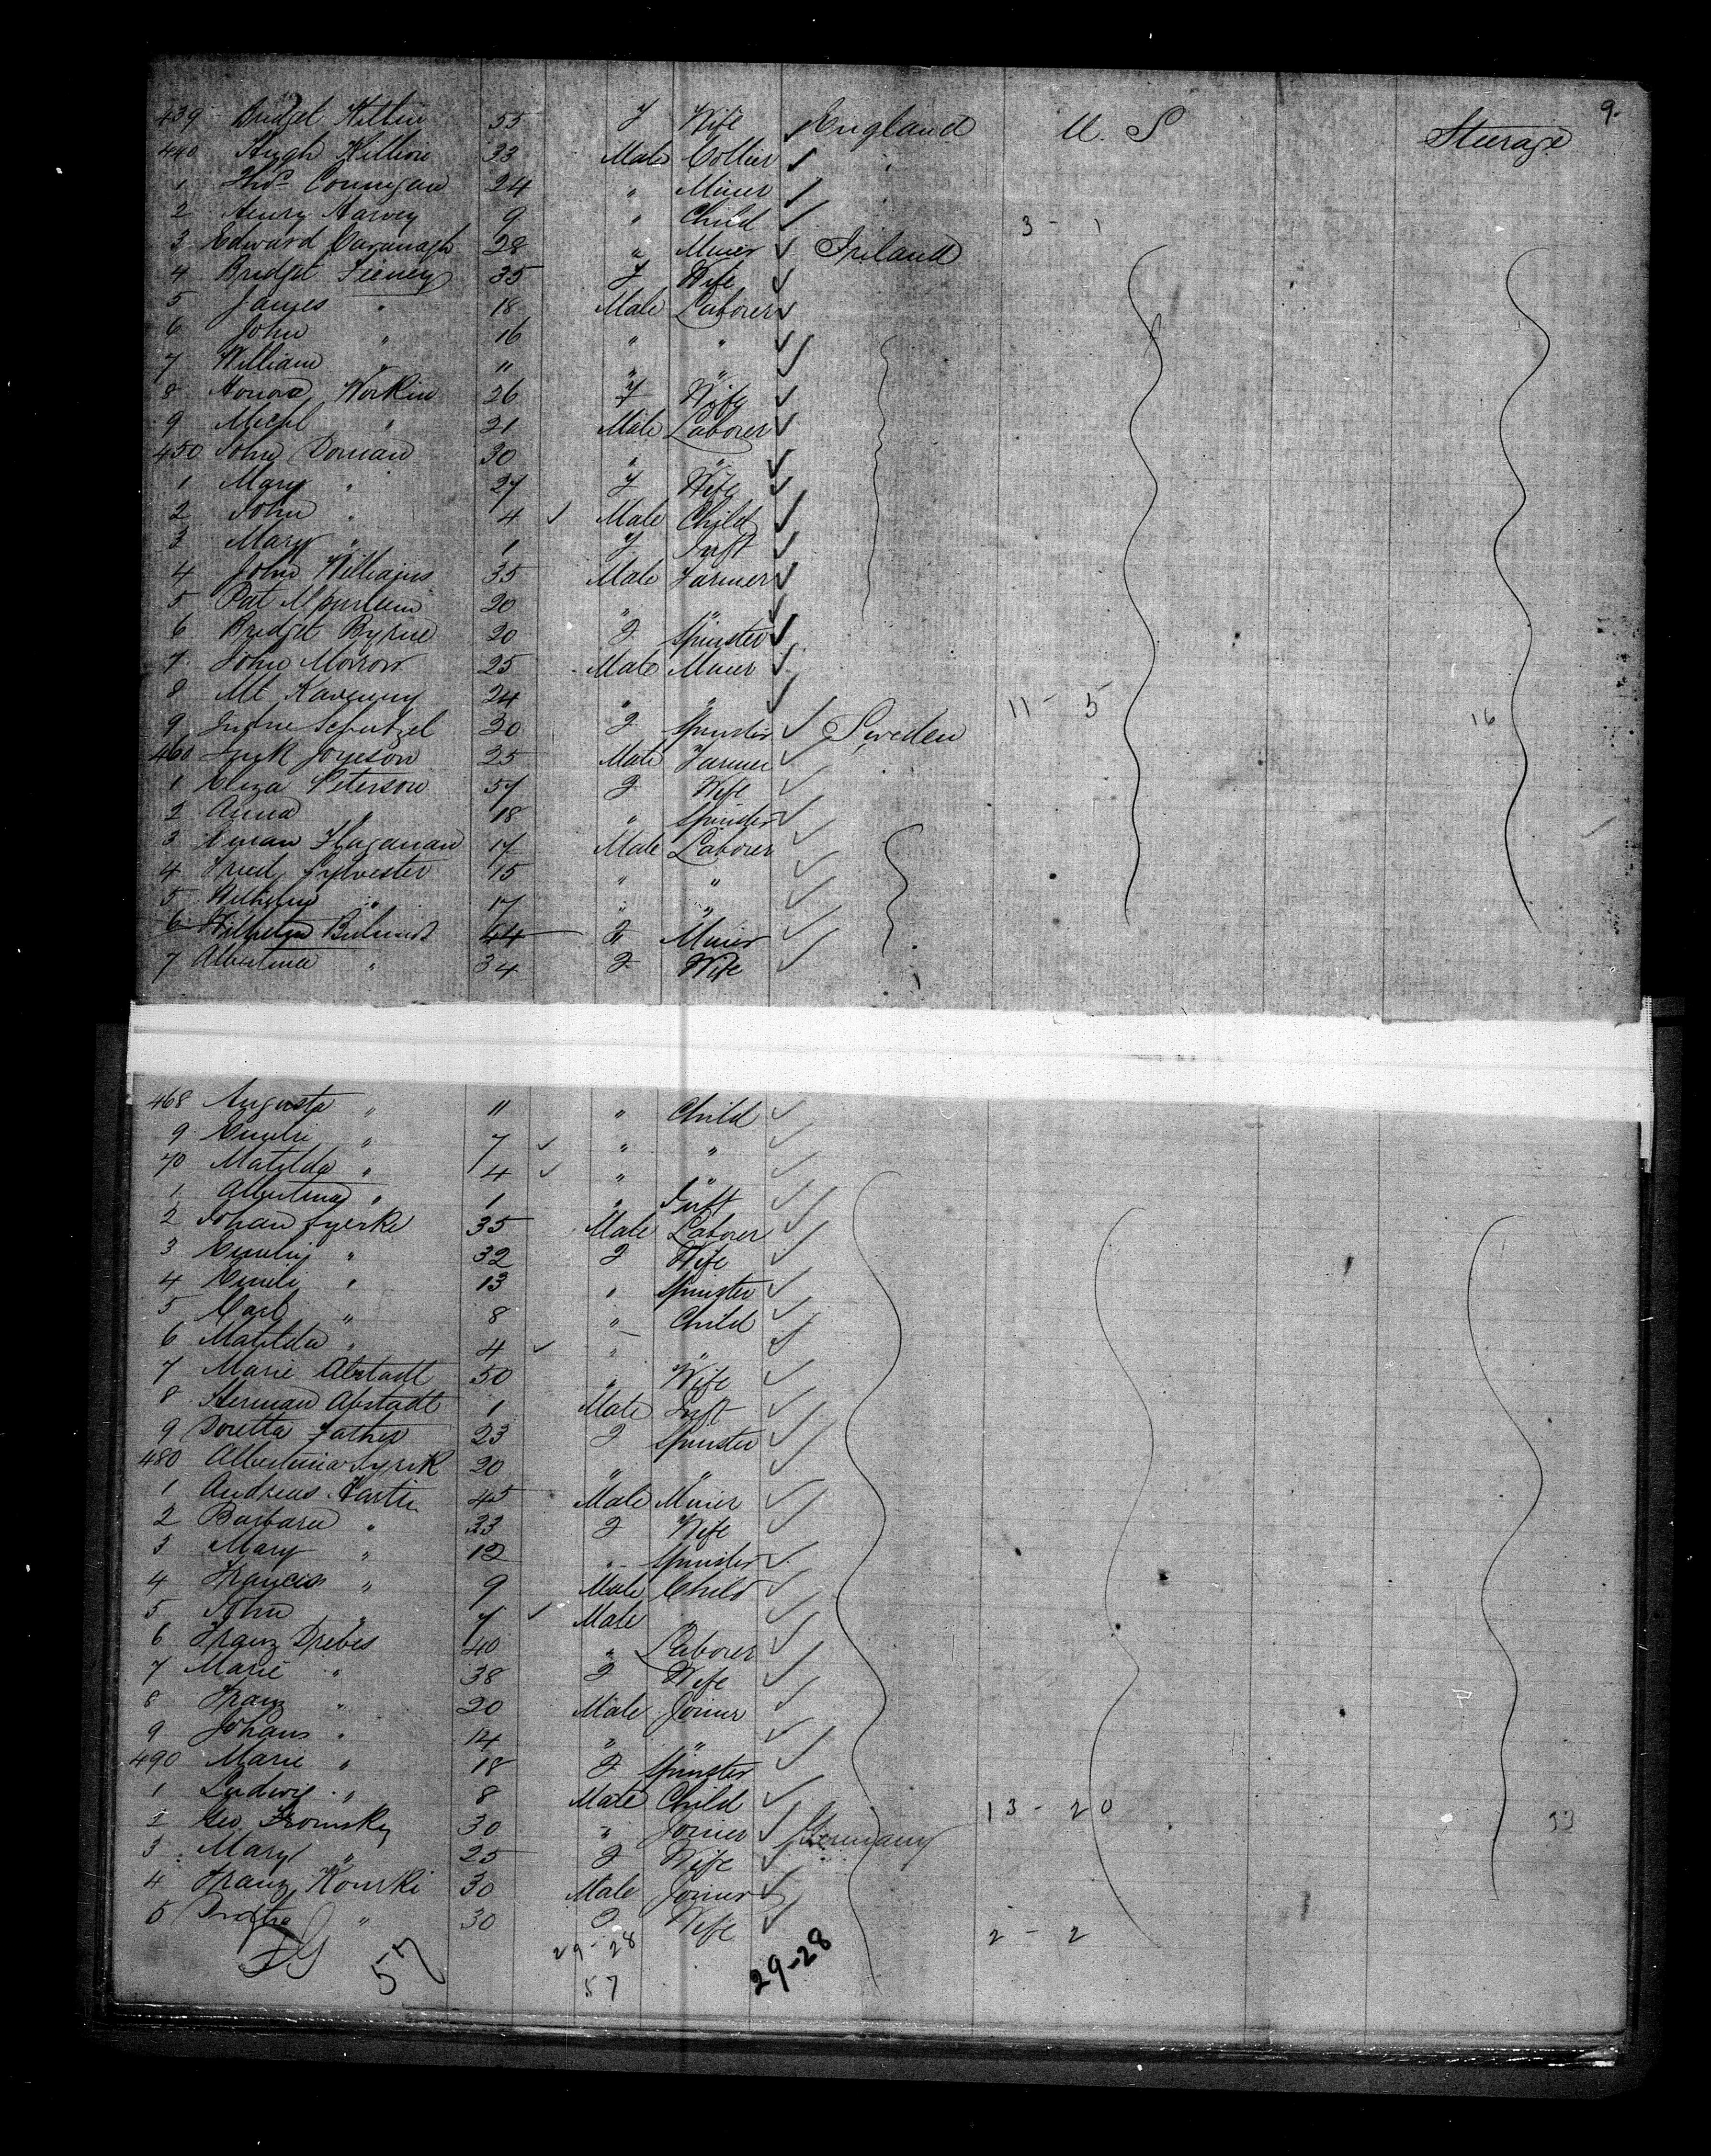 9.
439 Bridget Killin 55 F Wife England U. S Steerage
440 Hugh Killion 33 Male Collier
1 Thos Connigan 24 " Miner
2 Henry Harvey 9 " Child 3 - 1
3 Edward Cavanagh 28 " Miner Ireland
4 Bridget Tierney 35 F Wife
5 James " 18 Male Laborer
6 John " 16 " "
7 William " 11 " "
8 Honora Workin 26 F Wife
9 Michl " 21 Male Laborer
450 John Dornan 30 " "
1 Mary " 27 F Wife
2 John " 4 Male Child
3 Mary " 1 F Inft
4 John Williams 35 Male Farmer
5 Pat 20 " "
6 Bridget Byrne 20 F Spinster
7 John Morrow 25 Male Miner
8 Mt 24 " " 11 - 5
9 30 F Spinster Sweden 16
460 25 Male Farmer
1 Eliza Peterson 57 F Wife
2 Anna " 18 " Spinster
3 Haganan 17 Male Laborer
4 Fried Sylvester 15 " "
5 Wilhelm " 17 " "
6 Wilhelm 44 F Miner
7 Albertina " 34 F Wife
468 Augusta " 11 " Child
9 Emilie " 7 " "
70 Matilda " 4 " "
1 Albertina " 1 " Inft
2 Johan 35 Male Laborer
3 " 32 F Wife
4 Emili " 13 " Spinster
5 Carl " 8 " Child
6 Matilda " 4 " "
7 Marie Abstadt 50 " Wife
8 Herman Abstadt 1 Male Inft
9 Doretta Father 23 F Spinster
480 Albertina 20 " "
1 Andreas 45 Male Miner
2 Barbara " 33 F Wife
3 Mary " 12 " Spinster
4 Francis " 9 Male Child
5 John " 7 Male "
6 Franz Drebes 40 " Laborer
7 Marie " 38 F Wife
8 Franz " 20 Male Joiner
9 Johans " 14 " "
490 Marie " 18 F Spinster
1 Ludwig " 8 Male Child 13 - 20
2 Geo. 30 " Joiner Germany 33
3 Mary " 25 F Wife
4 Franz Konski 30 Male Joiner
5 " 30 F Wife 2 - 2
57 29 - 28 29-28
57